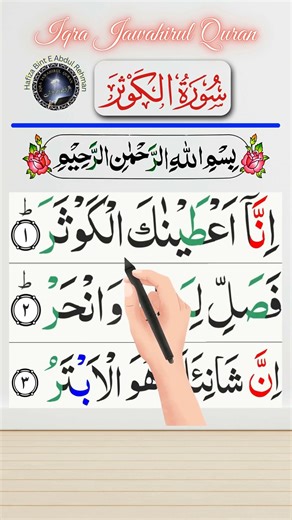 Iqra Jawahirul Quran
Hafiza Bint E Abdul Rehman
سُورَةُ الْكَوْثَر
بِسْمِ اللهِ الرَّحْمٰنِ الرَّحِيْمِ
اِنَّاۤ اَعْطَيْنٰكَ الْكَوْثَرَ ؕ ﴿۱﴾
فَصَلِّ وَانْحَرْ ؕ ﴿۲﴾
اِنَّ هُوَ الْاَبْتَرُ ﴿۳﴾